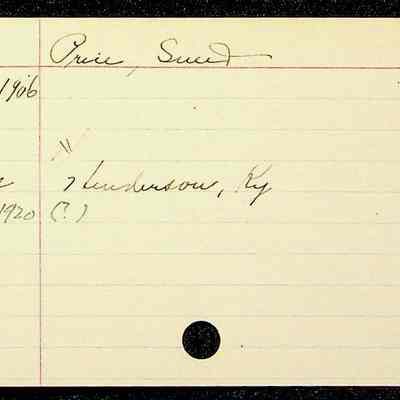 Price, Sneed
1906
Henderson, Ky
1920 (?)